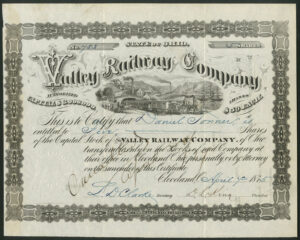 No 783
STATE OF OHIO.
Valley Railway Company
AUTHORIZED
CAPITAL $3,000,000.
SHARES
$50 EACH.
This is to Certify that Daniel Sonner is
entitled to Six Shares
of the Capital Stock of the VALLEY RAILWAY COMPANY, of Ohio
transferable only on the Books of said Company at
their office in Cleveland Ohio personally or by Attorney
on surrender of this Certificate
Cleveland, April 7th 1875
S. D. Clarke